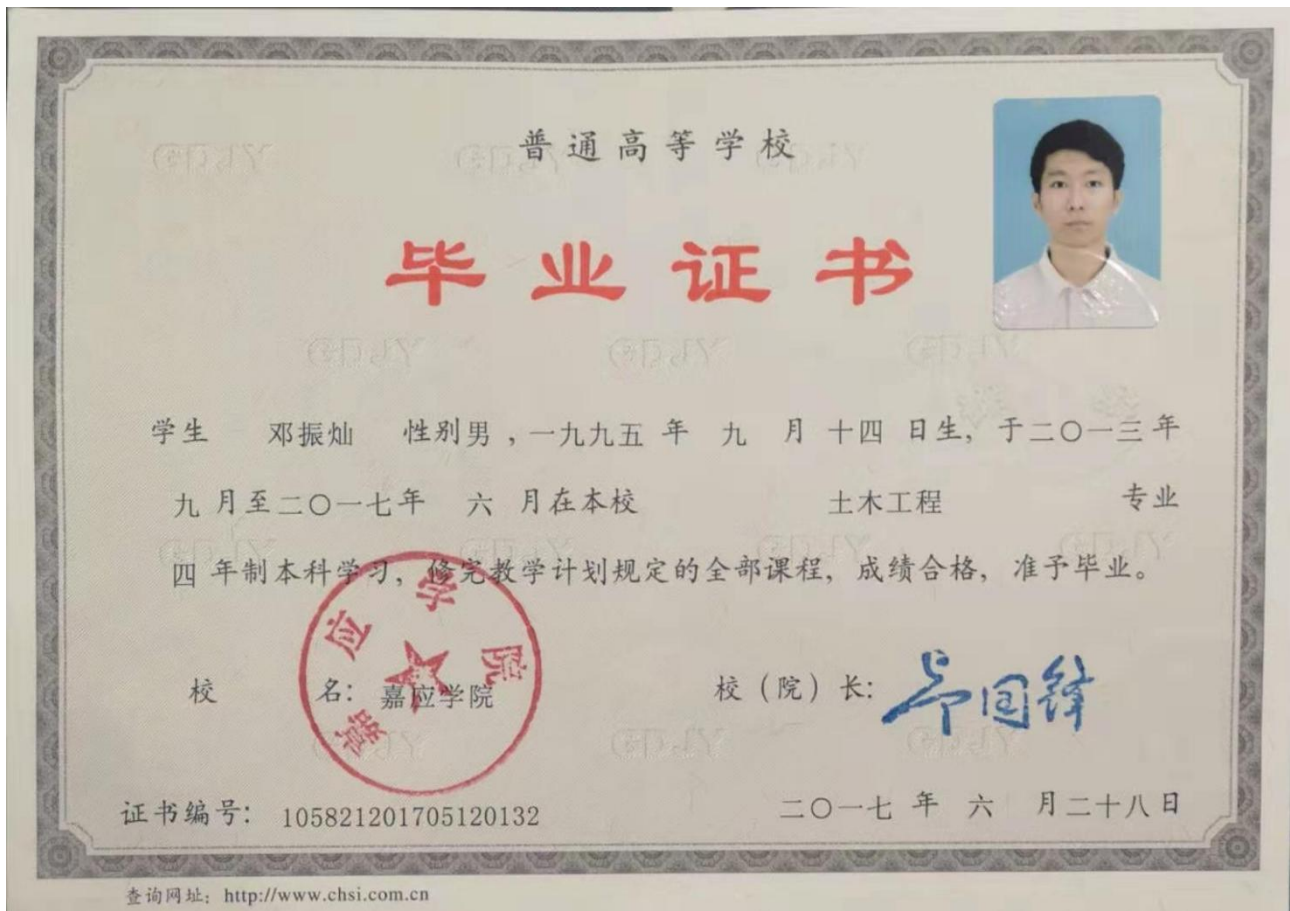 普通高等学校
毕业证书
学生 邓振灿 性别男，一九九五年 九 月 十四 日生，于二〇一三年
九 月至二〇一七年 六 月在本校 土木工程 专业
四 年制本科学习，修完教学计划规定的全部课程，成绩合格，准予毕业。
嘉应学院
校 名：嘉应学院 校（院）长：
证书编号：105821201705120132 二〇一七 年 六 月二十八日
查询网址：http://www.chsi.com.cn